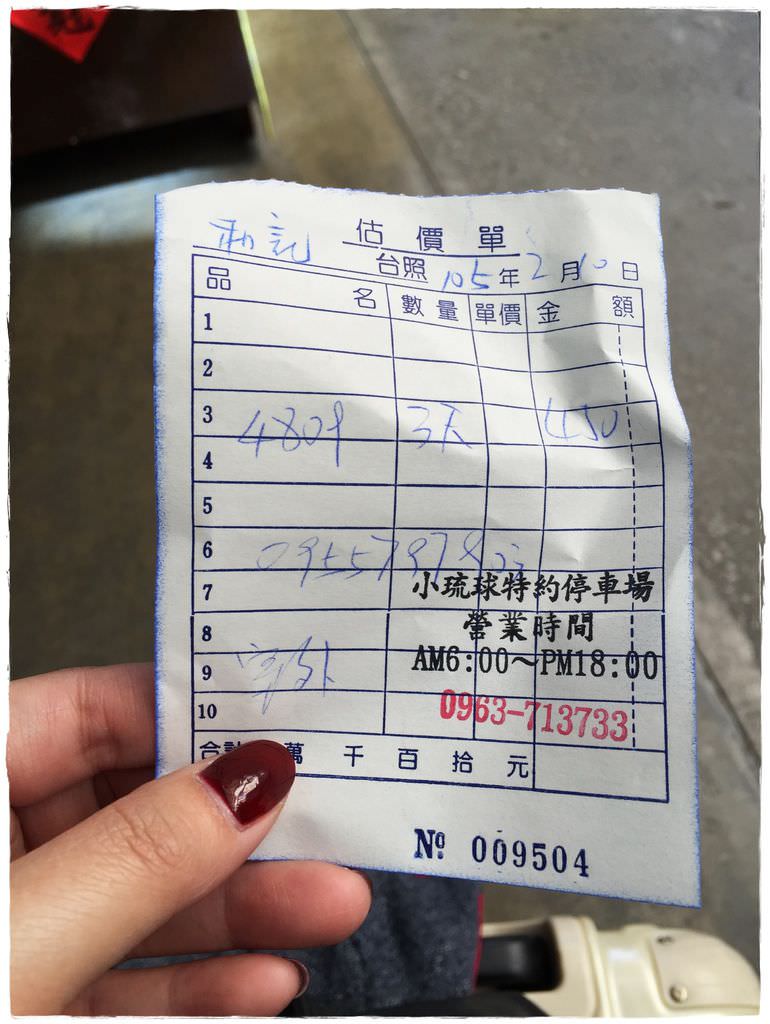 估價單
台照 105 年 2 月 10 日
品名 數量 單價 金額
1
2
3 4809 3天 450
4
5
6
7 小琉球特約停車場
8 營業時間
9 室外 AM6:00～PM18:00
10 0963-713733
合計 萬 千 百 拾 元
Nº 009504